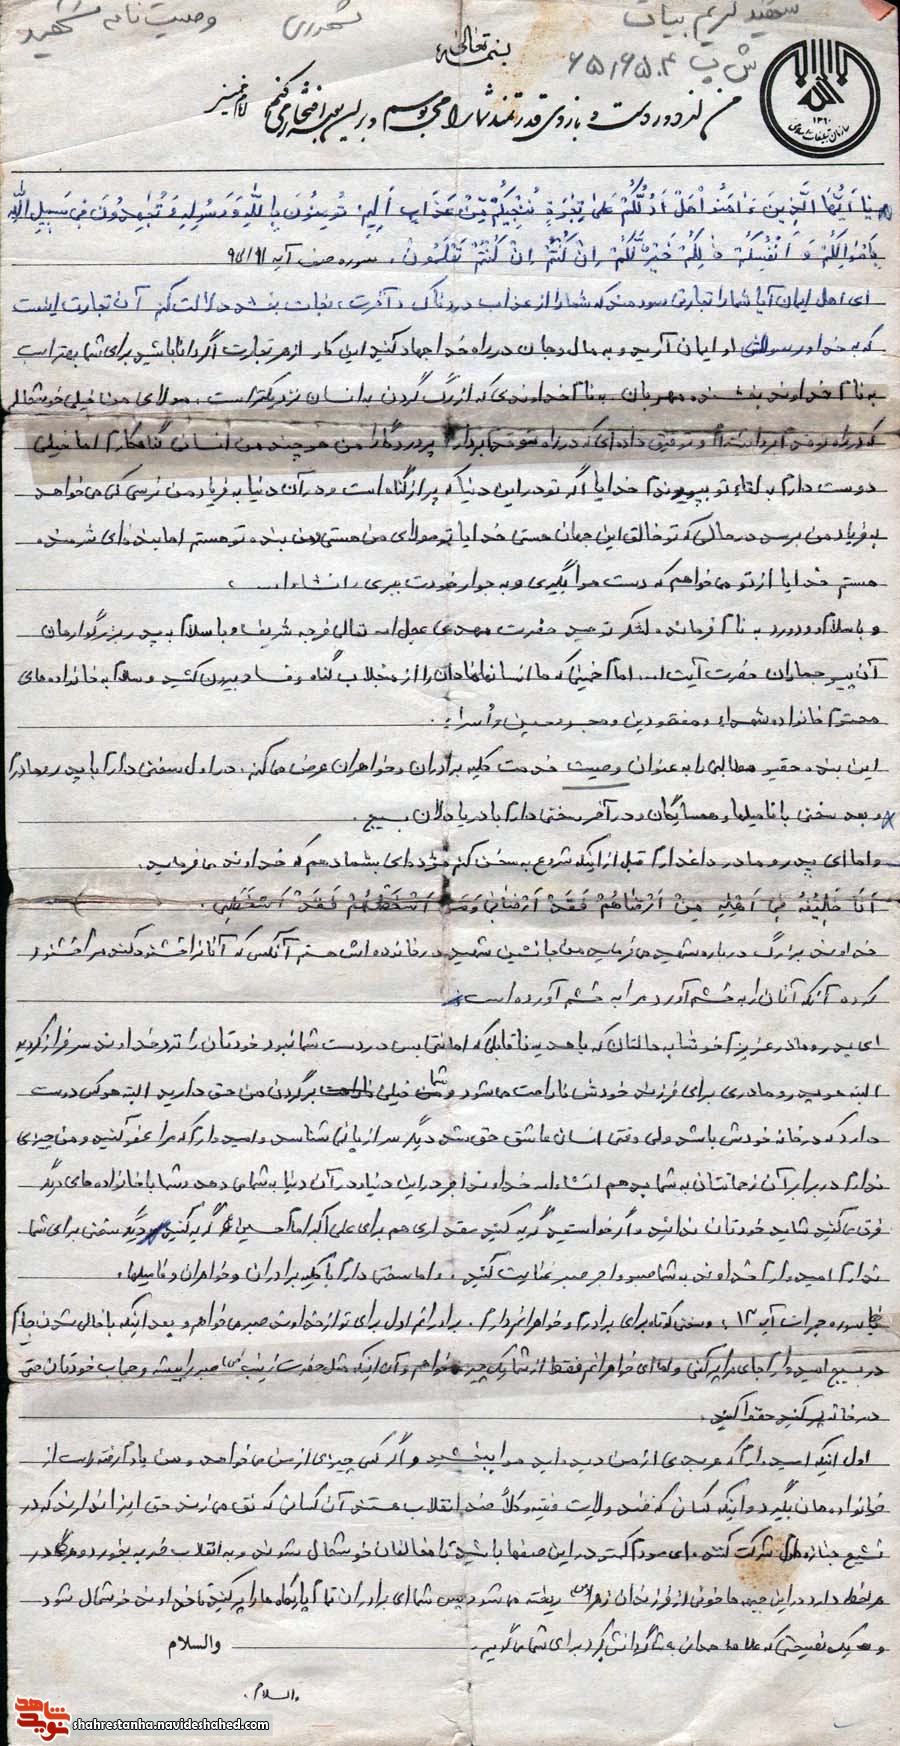 شهید کریم بیات
شهرری
وصیت نامه شهید
ش پ ۶۵۱۶۵۰۴
بسمه تعالی
من از دور دست و بازوی قدرتمند شما را می بوسم و بر این بوسه افتخار می کنم امام خمینی
۱۳۶۰
سازمان تبلیغات اسلامی
یا اَیُّهَا الَّذینَ ءَامَنُوا هَلْ اَدُلُّکُمْ عَلی تِجَرَةٍ تُنْجیکُمْ مِّنْ عَذَابٍ اَلیمٍ تُؤمِنُونَ بِاللهِ وَ رَسُولِهِ وَ تُجَهِدُونَ فِی سَبیلِ اللهِ
بِاَمْوَالِکُمْ وَ اَنْفُسِکُمْ ذلِکُمْ خَیْرٌ لَّکُمْ اِنْ کُنْتُمْ تَعْلَمُونَ. سوره صف آیه
ای اهل ایمان آیا شما را به تجارتی سودمند که شما را از عذاب دردناک آخرت نجات بخشد دلالت کنم آن تجارت اینست
که به خدا و رسول او ایمان آرید و به مال و جان در راه خدا جهاد کنید این کار از هر تجارت اگر دانا باشید برای شما بهتر است
به نام خداوند بخشنده مهربان به نام خداوندی که از رگ گردن به انسان نزدیکتر است. مولای من خیلی خوشحالم
که در راه تو قدم برداشته ام و توفیق داده ای که در راه تو قدم بردارم پروردگار من هر چند من انسانی گناهکارم اما خیلی
دوست دارم به لقاء تو بپیوندم خدایا اگر تو در این دنیا که پر از گناه است و در آن دنیا به فریاد من نرسی کی می خواهد
به فریاد من برسد در حالی که تو خالق این جهان هستی خدایا تو مولای من هستی و من بنده تو هستم اما بنده ای شرمنده
هستم خدایا از تو می خواهم که دست مرا بگیری و به جوار خودت ببری انشاءا...
و با سلام و درود به نام فرمانده لشکر توحید حضرت مهدی عجل اله تعالی فرجه شریف و با سلام به پدر بزرگوارمان
آن پیر جماران حضرت آیت ا... امام خمینی که ما انسانهای نادان را از منجلاب گناه و فساد بیرون کشید و سلام به خانواده های
محترم خانواده شهداء و مفقودین و مجروحین و اُسراء.
این بنده حقیر مطالبی را به عنوان وصیت خدمت کلیه برادران و خواهران عرض می کنم. در اول سخنی دارم با پدر و مادرم
و بعد سخنی با فامیلها و همسایگان و در آخر سخنی دارم با دریادلان بسیج.
و اما ای پدر و مادر داغدارم قبل از اینکه شروع به سخن کنم مژده ای بشما دهم که خداوند می فرماید.
اَنَا خَلیفُهُ فِی اَهْلِهِ مَنْ اَرْضاهُمْ فَقَدْ اَرْضانی وَ مَنْ اَسْخَطَهُمْ فَقَدْ اَسْخَطَنی.
خداوند بزرگ درباره شهید می فرماید من جانشین شهید در خانواده اش هستم آنکس که آنانرا خشنود کند مرا خشنود
کرده آنکه آنان را به خشم آورد مرا به خشم آورده است.
ای پدر و مادر عزیزم خوشا به حالتان که با هدیه ناقابلی که امانتی بیش در دست شما نبود خودتان را نزد خداوند سرفراز کردید
البته هر پدر و مادری برای فرزند خودش ناراحت میشود و شما خیلی برگردن من حق دارید البته هر کس دوست
دارد که در خانه خودش باشد ولی وقتی انسان عاشق حق شد دیگر سر از پا نمی شناسد و امیدوارم که مرا عفو کنید و من چیزی
ندارم در برابر آن زحمتتان به شما بدهم انشاءاله خداوند اجر در این دنیا و در آن دنیا به شما می دهد و شما با خانواده های دیگر
فرق می کنید شاید خودتان ندانید و اگر خواستید گریه کنید مقداری هم برای علی اکبر امام حسین گریه کنید دیگر سخنی برای شما
ندارم امیدوارم خداوند به شما صبر و اجر صبر عنایت کند. و اما سخنی دارم با کلیه برادران و خواهران و فامیلها.
سوره حجرات آیه ۱۳: و سخنی کوتاه برای برادرم و خواهرانم دارم. برادرانم اول برای تو از خداوند صبر می خواهم و بعد اینکه با خالی شدن جایم
در بسیج امیدوارم جای مرا پر کنی و اما ای خواهرانم فقط از شما یک چیز میخواهم و آن اینکه مثل حضرت زینب (س) صبر را پیشه و حجاب خودتان حتی
در خانه حفظ کنید.
اول اینکه امیدوارم اگر هر بدی از من دیده اید مرا ببخشید و اگر کسی چیزی از من می خواهد و من یادم رفته است از
خانواده مان بگیرد و اینکه کسانی که ضد ولایت فقیه و کلاً ضد انقلاب هستند آن کسانی که نق می زنند حتی اجازه ندارند که در
تشیع جنازه ام شرکت کنند. ای مردم در این صفها باشید تا مخالفان خوشحال نشوند و به انقلاب ضربه بخورد و هر گاه در
هر لحظه دارد در این جبهه ها خونی از فرزندان زهرا (س) ریخته می شود پس شما ای برادران تمام پایگاه ها را پر کنید تا خداوند خوشحال شود
و یک نصیحتی که علامه همدانی به شاگردانش کرد برای شما می گویم. والسلام
والسلام.
نوید شاهد
shahrestanha.navideshahed.com